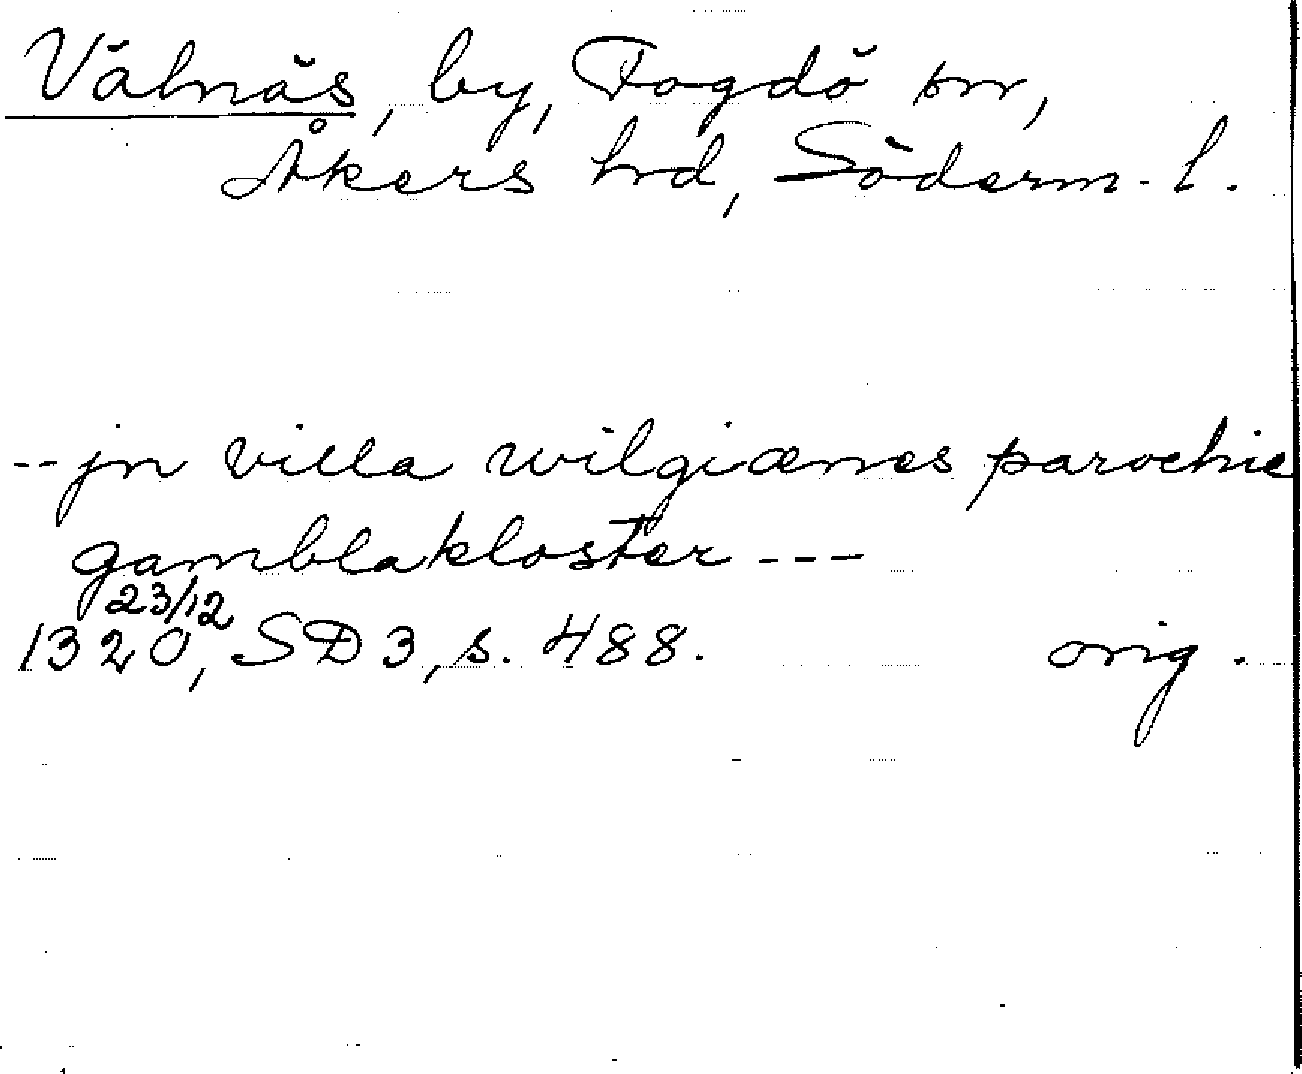 Välnäs, by, Fogdö sn,
Åkers hrd, Söderm. l.
-- jn villa wilgiænes parochie
gamblakloster ---
23/12
1320, SD 3, s. 488. orig.